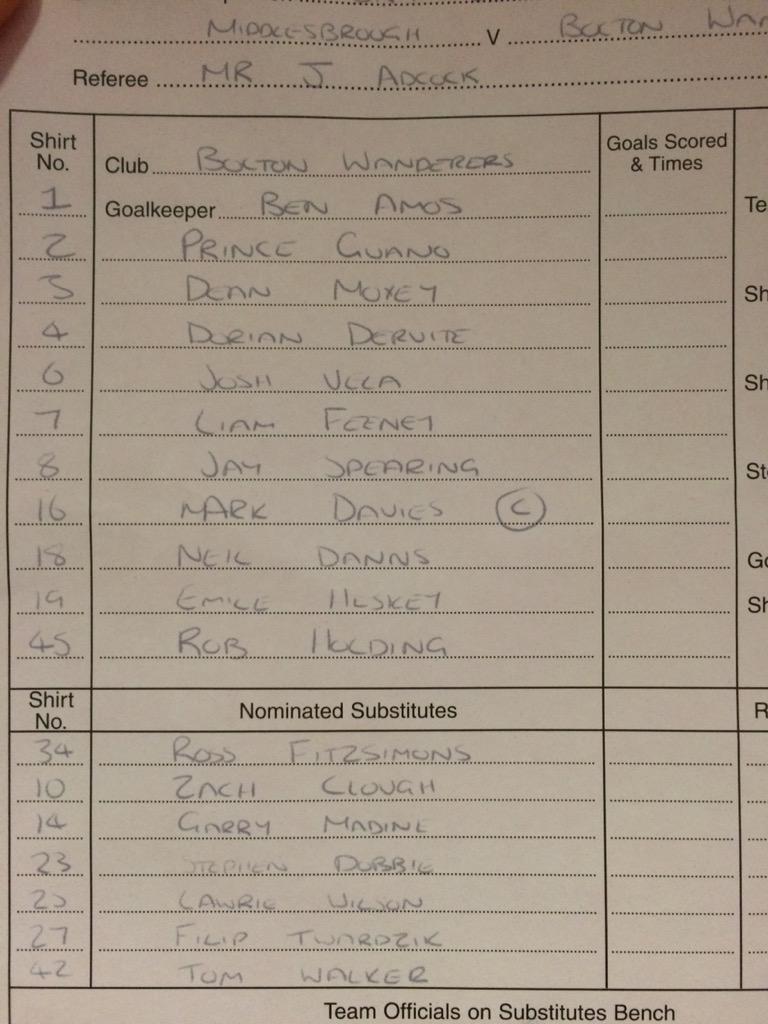 MIDDLESBROUGH V BOLTON WAN
Referee MR J ADCOCK
Shirt No. Club BOLTON WANDERERS Goals Scored & Times
1 Goalkeeper BEN AMOS Te
2 PRINCE GUANO
3 DEAN MOXEY Sh
4 DORIAN DERVITE
6 JOSH VELA Sh
7 LIAM FEENEY
8 JAY SPEARING St
16 MARK DAVIES C
18 NEIL DANNS Go
19 EMILE HESKEY Sh
45 ROB HOLDING
Shirt No. Nominated Substitutes R
34 ROSS FITZSIMONS
10 ZACH CLOUGH
14 GARRY MADINE
23 STEPHEN DOBBIE
25 LAWRIE WILSON
27 FILIP TWARDZIK
42 TOM WALKER
Team Officials on Substitutes Bench